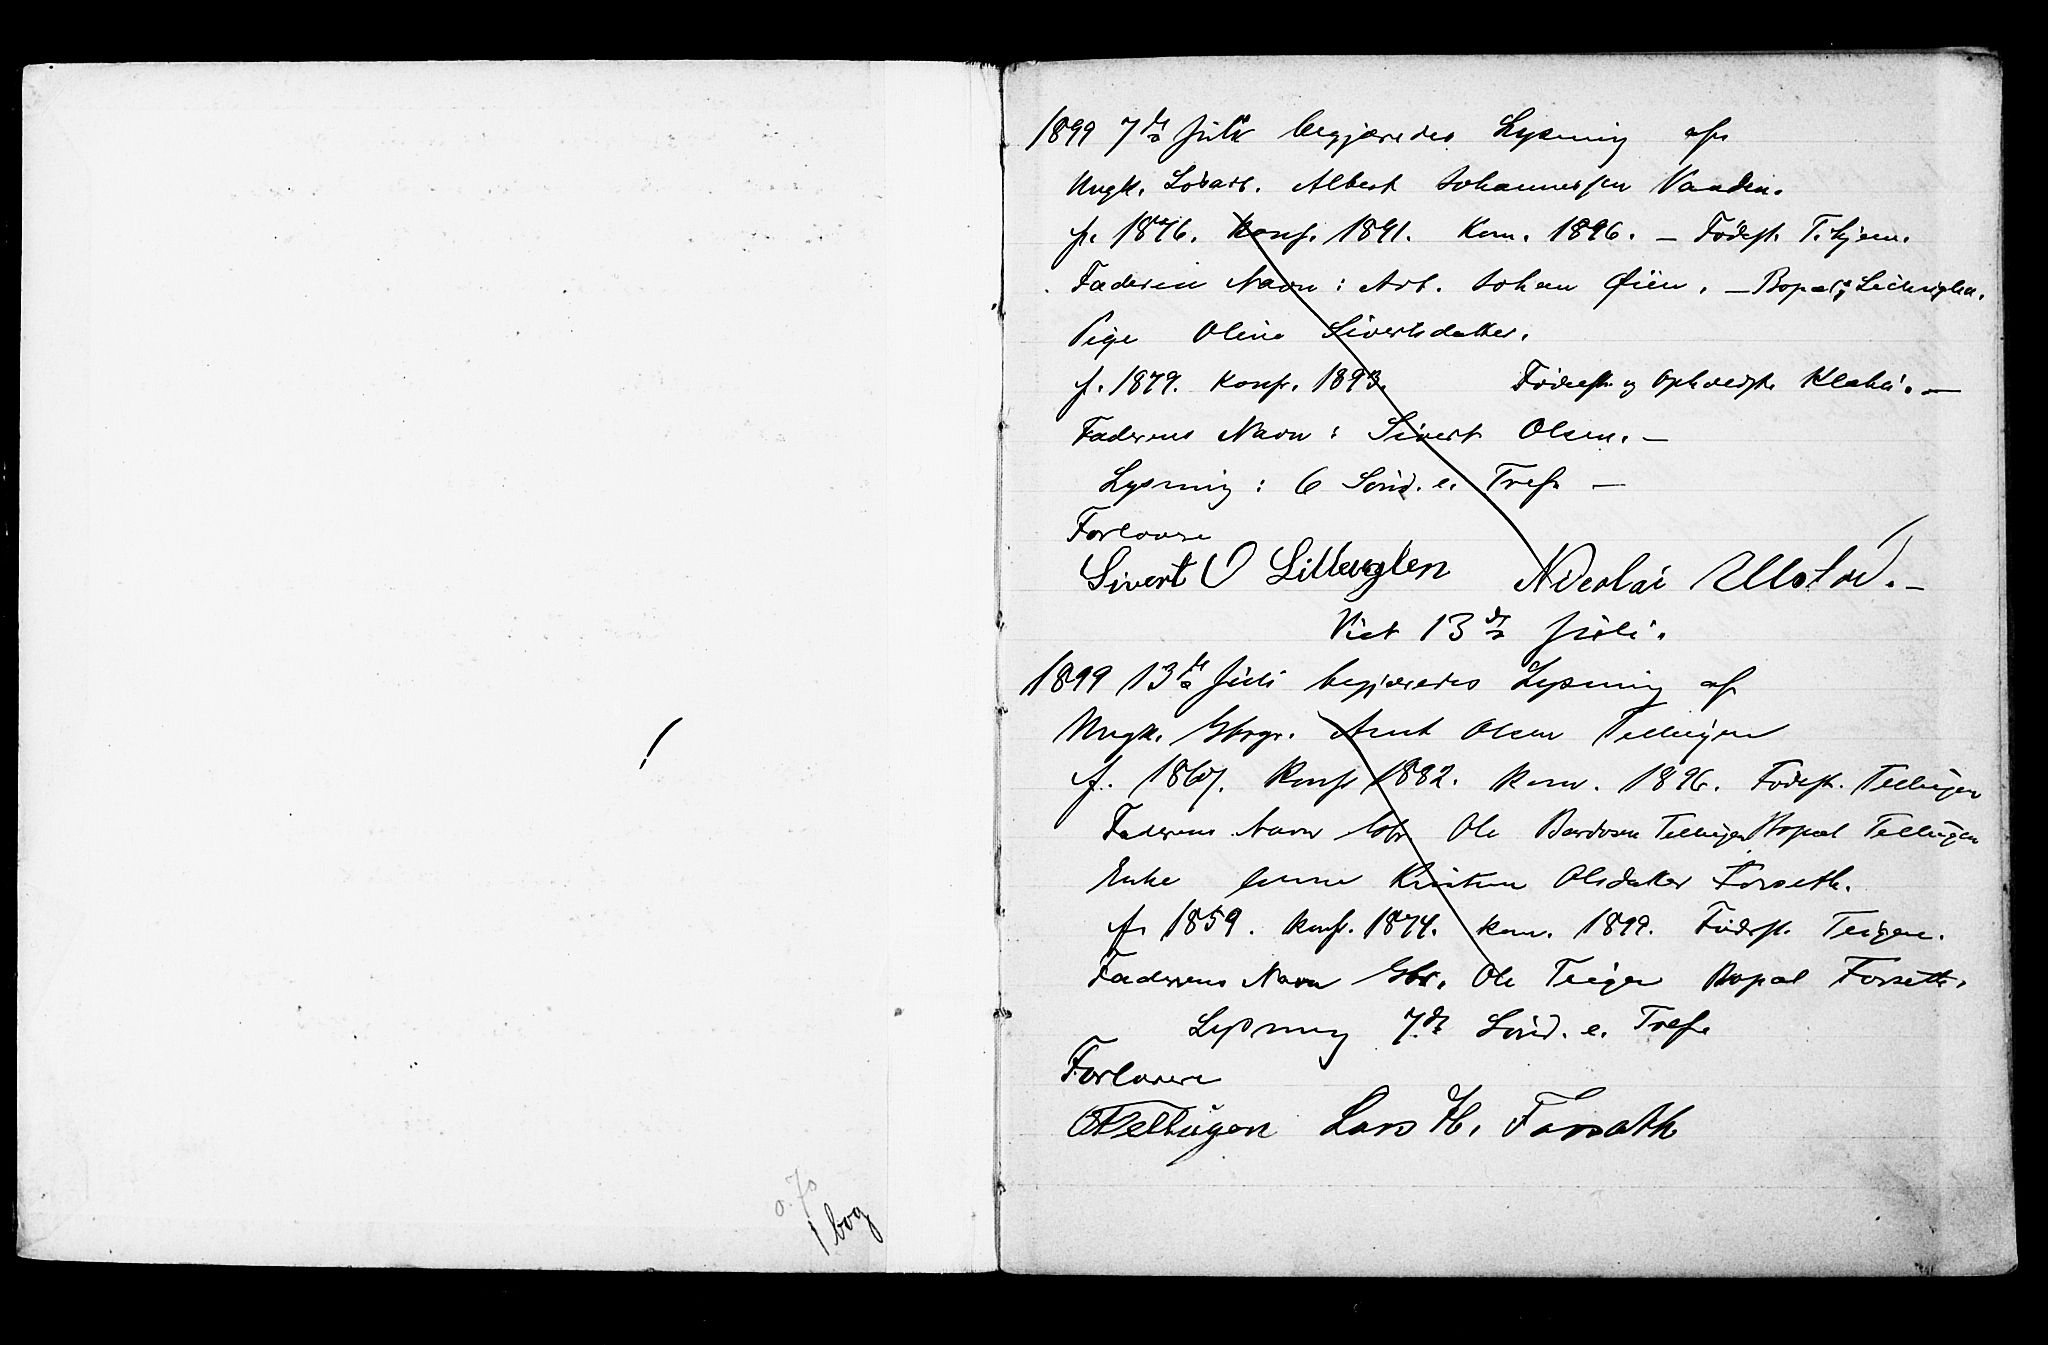 0.70
1 bog
1899 7de Juli begjæredes Lysning af
Ungk. Løsarb. Albert Johannessen Vanden.
f. 1876. Konf. 1891. Kom. 1896. – Fødest. T.hjem.
Faderens Navn: Arb. Johan Øien. – Bopæl:
Pige Oline Sivertsdatter.
f. 1879. Konf. 1893. Fødest. og Opholdsst. Klæbu. –
Faderens Navn: Sivert Olsen. –
Lysning: 6 Sønd. e. Tref. –
Forlovere
Sivert O Lilleuglen Nicolai Ulstad. –
Viet 13de Juli.
1899 13de Juli begjæredes Lysning af
Ungk. Gbrgr. Arnt Olsen Tellugen
f. 1867. Konf. 1882. Kom. 1896. Fødest. Tellugen
Faderens Navn Gbr. Ole Bardosen Tellugen Bopæl Tellugen
Enke Kirsten Olsdatter Forseth.
f. 1859. Konf. 1874. Kom. 1899. Fødest. Teigen.
Faderens Navn Gbr. Ole Teigen Bopæl Forseth.
Lysning 7de Sønd. e. Tref.
Forlovere
OTellugen Lars H. Forseth